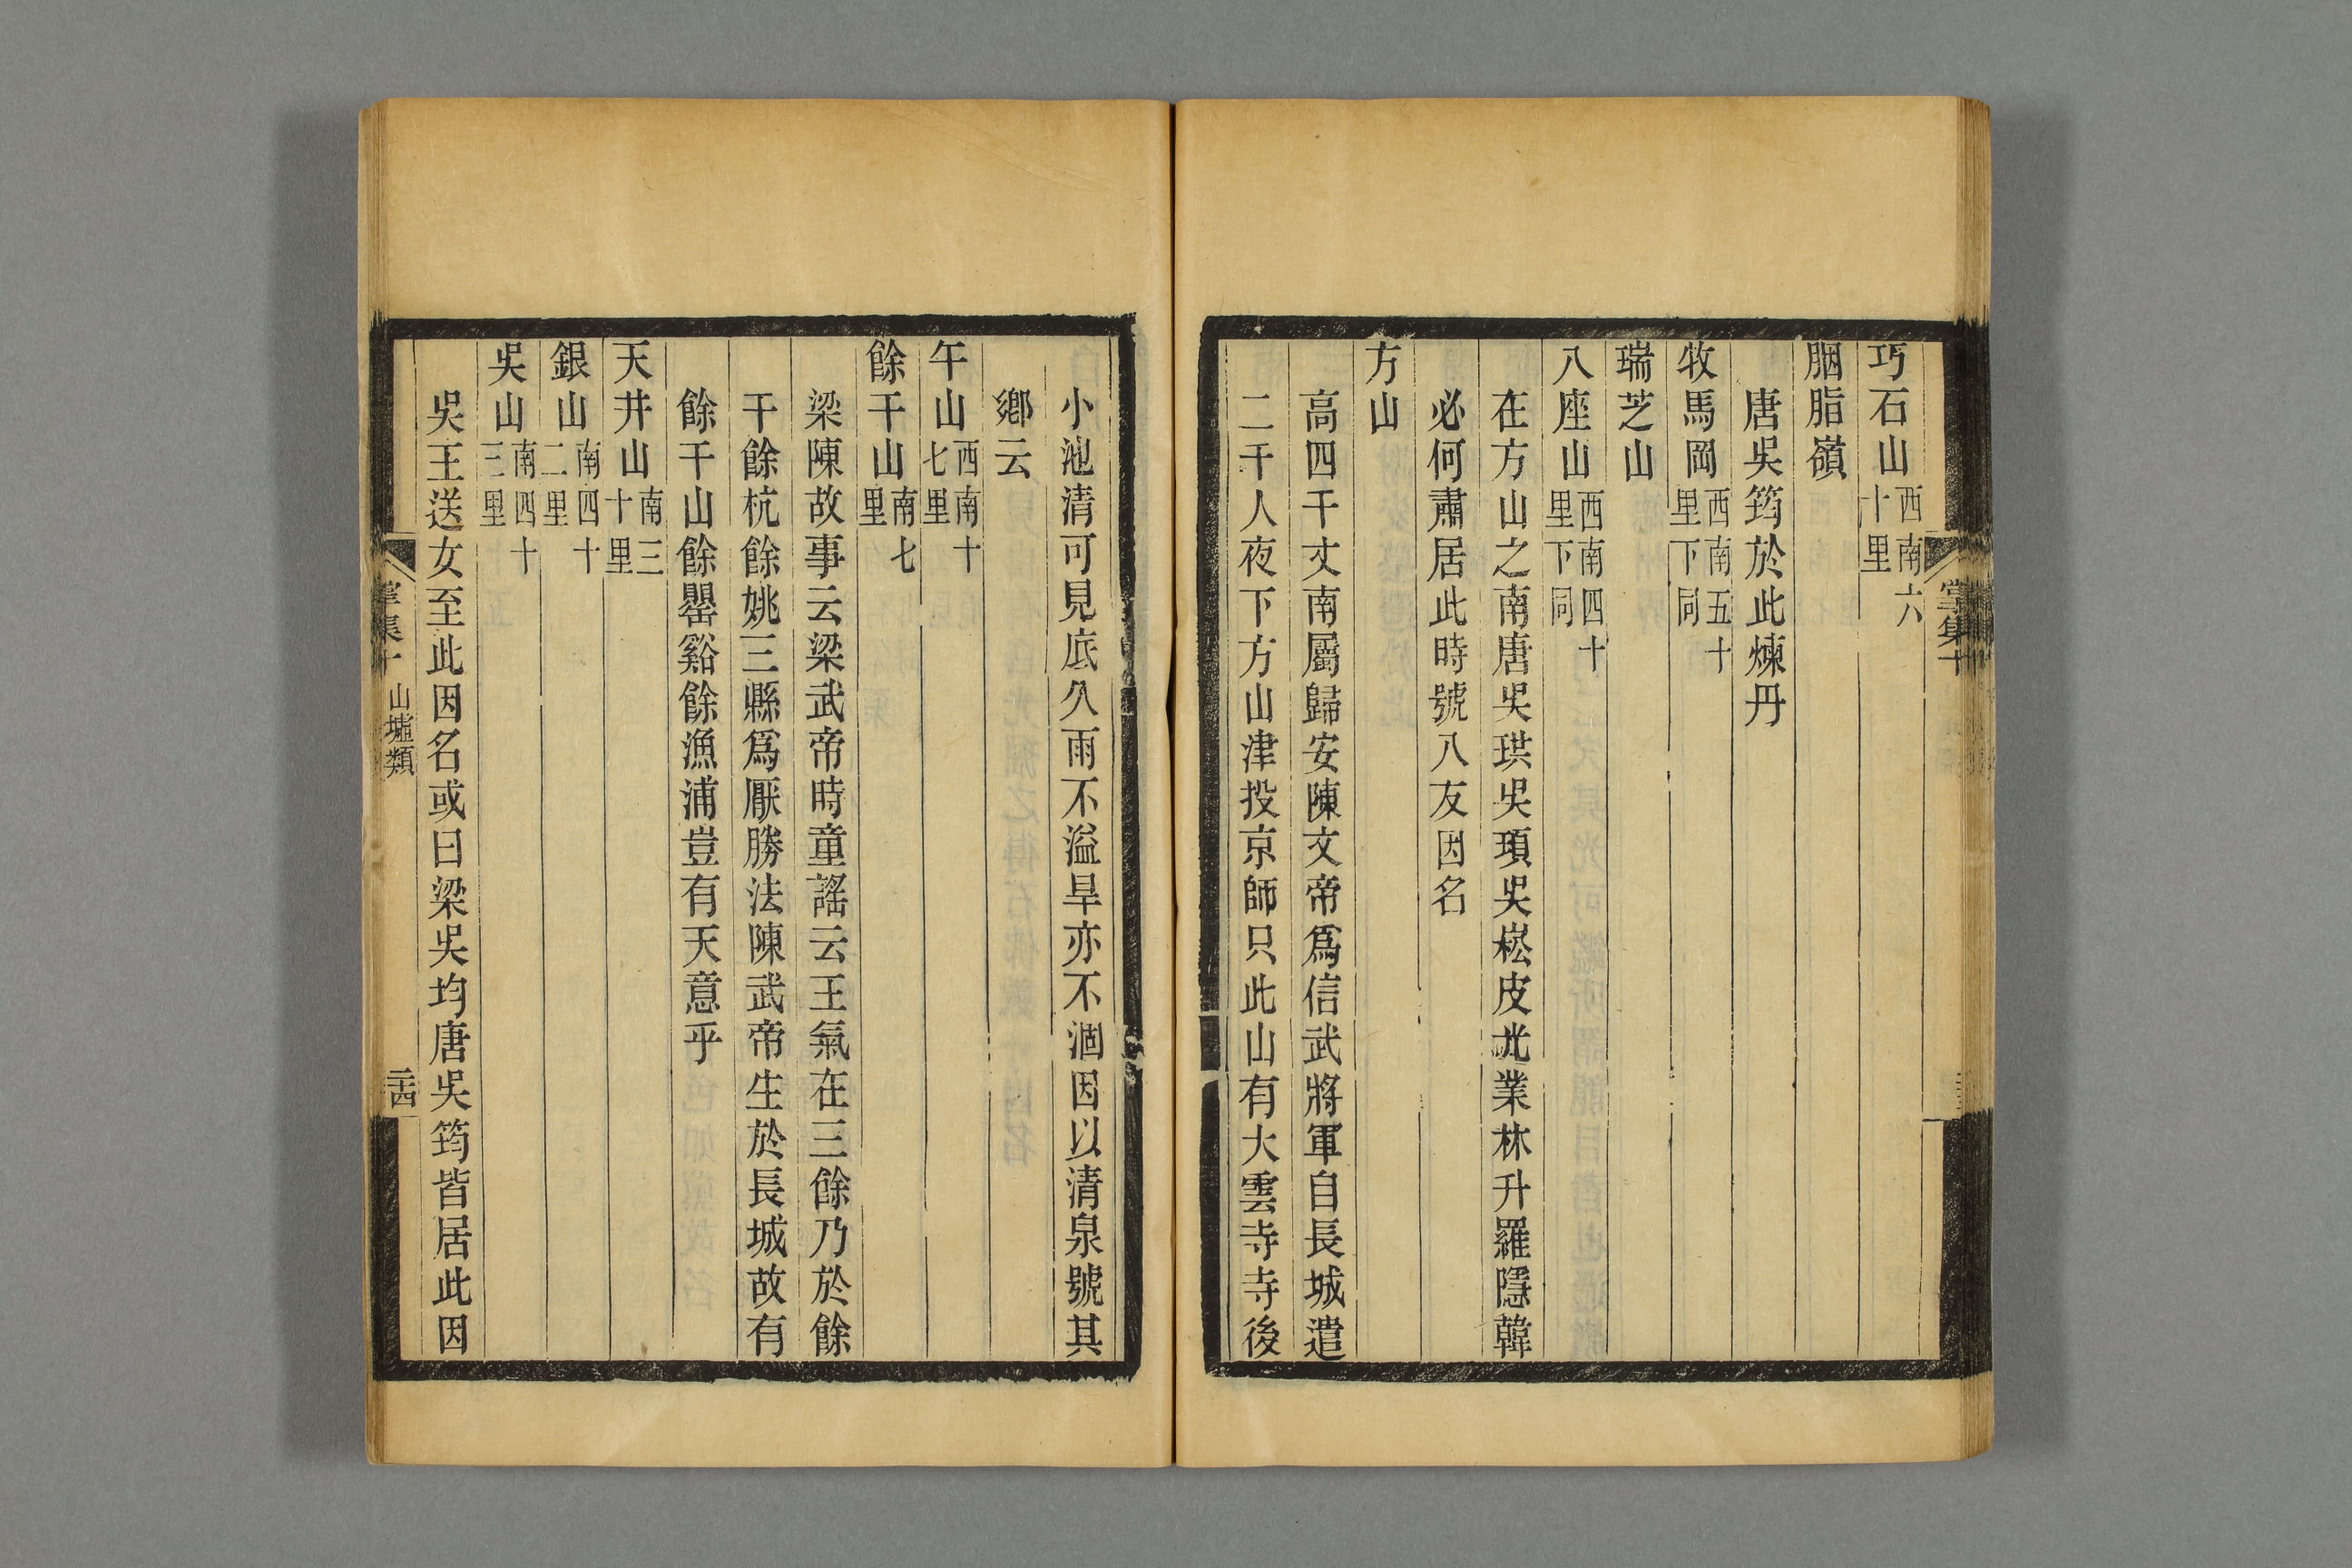 巧石山西南六十里
胭脂嶺
唐吳筠於此煉丹
牧馬岡西南五十里下同
瑞芝山
八座山西南四十里下同
在方山之南唐吳珙吳頊吳崧皮光業林升羅隱韓
必何肅居此時號八友因名
方山
高四千丈南屬歸安陳文帝爲信武將軍自長城遣
二千人夜下方山津投京師只此山有大雲寺寺後
小池清可見底久雨不溢旱亦不涸因以清泉號其
鄉云
午山西南十七里
餘干山南七里
梁陳故事云梁武帝時童謠云王氣在三餘乃於餘
干餘杭餘姚三縣爲厭勝法陳武帝生於長城故有
餘干山餘罌谿餘漁浦豈有天意乎
天井山南三十里
銀山南四十二里
吳山南四十三里
吳王送女至此因名或曰梁吳均唐吳筠皆居此因
掌集十
山墟類
二十四